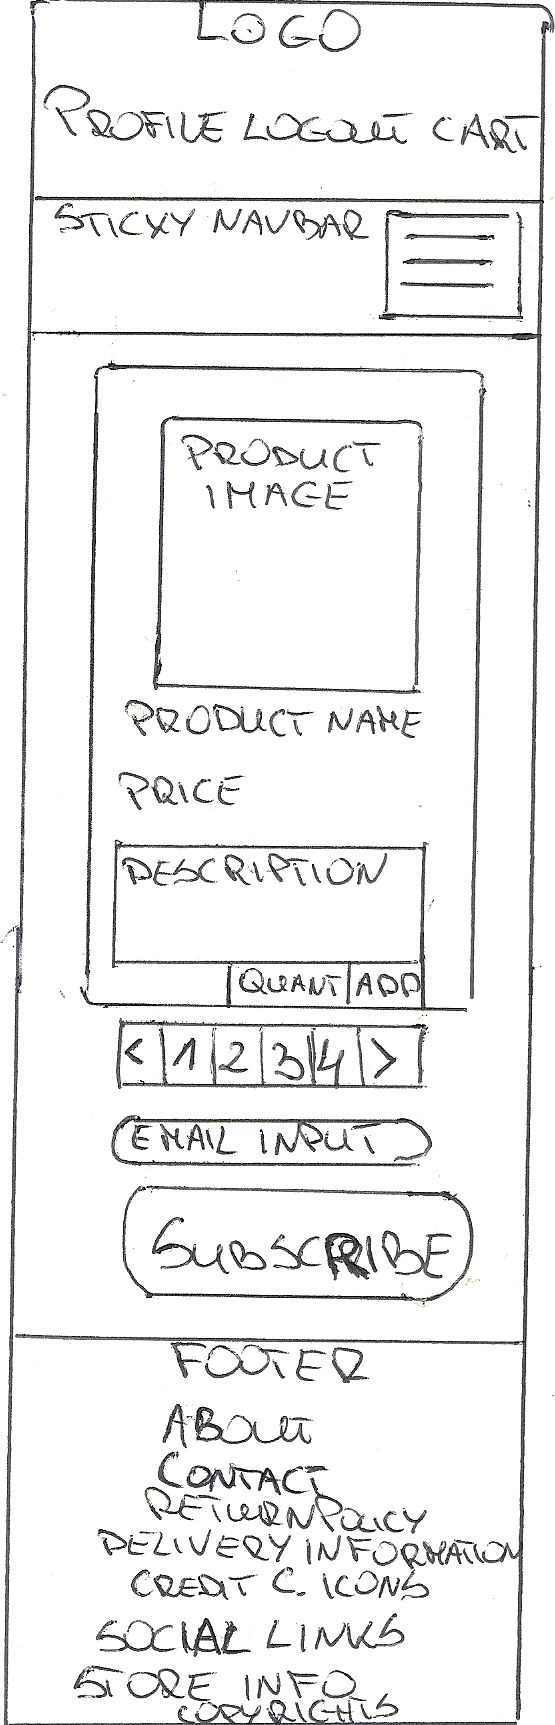 LOGO
PROFILE LOGOUT CART
STICKY NAVBAR
PRODUCT
IMAGE
PRODUCT NAME
PRICE
DESCRIPTION
QUANT ADD
< 1 2 3 4 >
EMAIL INPUT
SUBSCRIBE
FOOTER
ABOUT
CONTACT
RETURN POLICY
DELIVERY INFORMATION
CREDIT C. ICONS
SOCIAL LINKS
STORE INFO
COPYRIGHTS